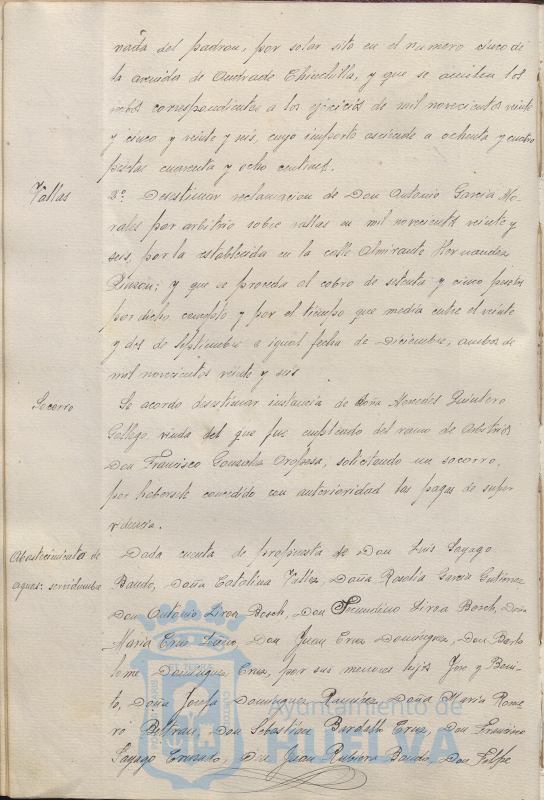 nada del padron, por solar sito en el numero cinco de
la avenida de Andrade Chinchilla, y que se anulen los
recibos correspondientes a los ejercicios de mil novecientos veinte
y cinco y veinte y seis, cuyo importe asciende a ochenta y cuatro
pesetas cuarenta y ocho centimos.
Vallas
2º Desestimar reclamacion de Don Antonio Garcia Mo-
rales por arbitrio sobre vallas en mil novecientos veinte y
seis, por la establecida en la calle Almirante Hernandez
Pinzon; y que se proceda al cobro de setenta y cinco pesetas
por dicho concepto y por el tiempo que media entre el veinte
y dos de Septiembre a igual fecha de Diciembre, ambos de
mil novecientos veinte y seis
Socorro
Se acordo desestimar instancia de Doña Mercedes Quintero
Gallego, viuda del que fue empleado del ramo de Arbitrios
Don Francisco Gonzalez Oropesa, solicitando un socorro,
por habersele concedido con anterioridad las pagas de super
vivencia.
Abastecimiento de
aguas: servidumbre
Dada cuenta de propuesta de Don Luis Sayago
Bando, Doña Catalina Vallez, Doña Rosalia Garcia Gutierrez
Don Antonio Liroa Bosch, Don Secundino Liroa Bosch, Doña
Maria Cruz Don Juan Cruz Dominguez, Don Barto
lome Dominguez Cruz, por sus menores hijos Jose y Beni-
to, Doña Josefa Dominguez Ramirez, Doña Maria Rome
ro Beltran, Don Sebastian Bardallo Cruz, Don Francisco
Sayago Don Juan Rubiera Bando, Don Felipe
Ayuntamiento de
HUELVA